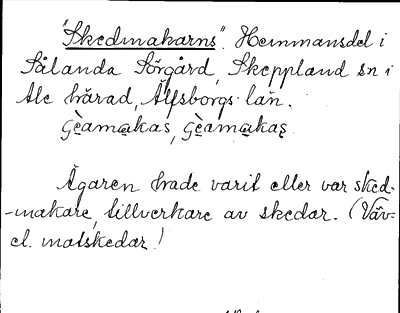 "Skedmakarns". Hemmansdel i
Sålanda Sörgård, Skepplanda sn i
Ale härad, Älfsborgs län.
Gèamakas, Gèamakas

Ägaren hade varit eller var sked-
-makare, tillverkare av skedar. (Väv-
el. matskedar!